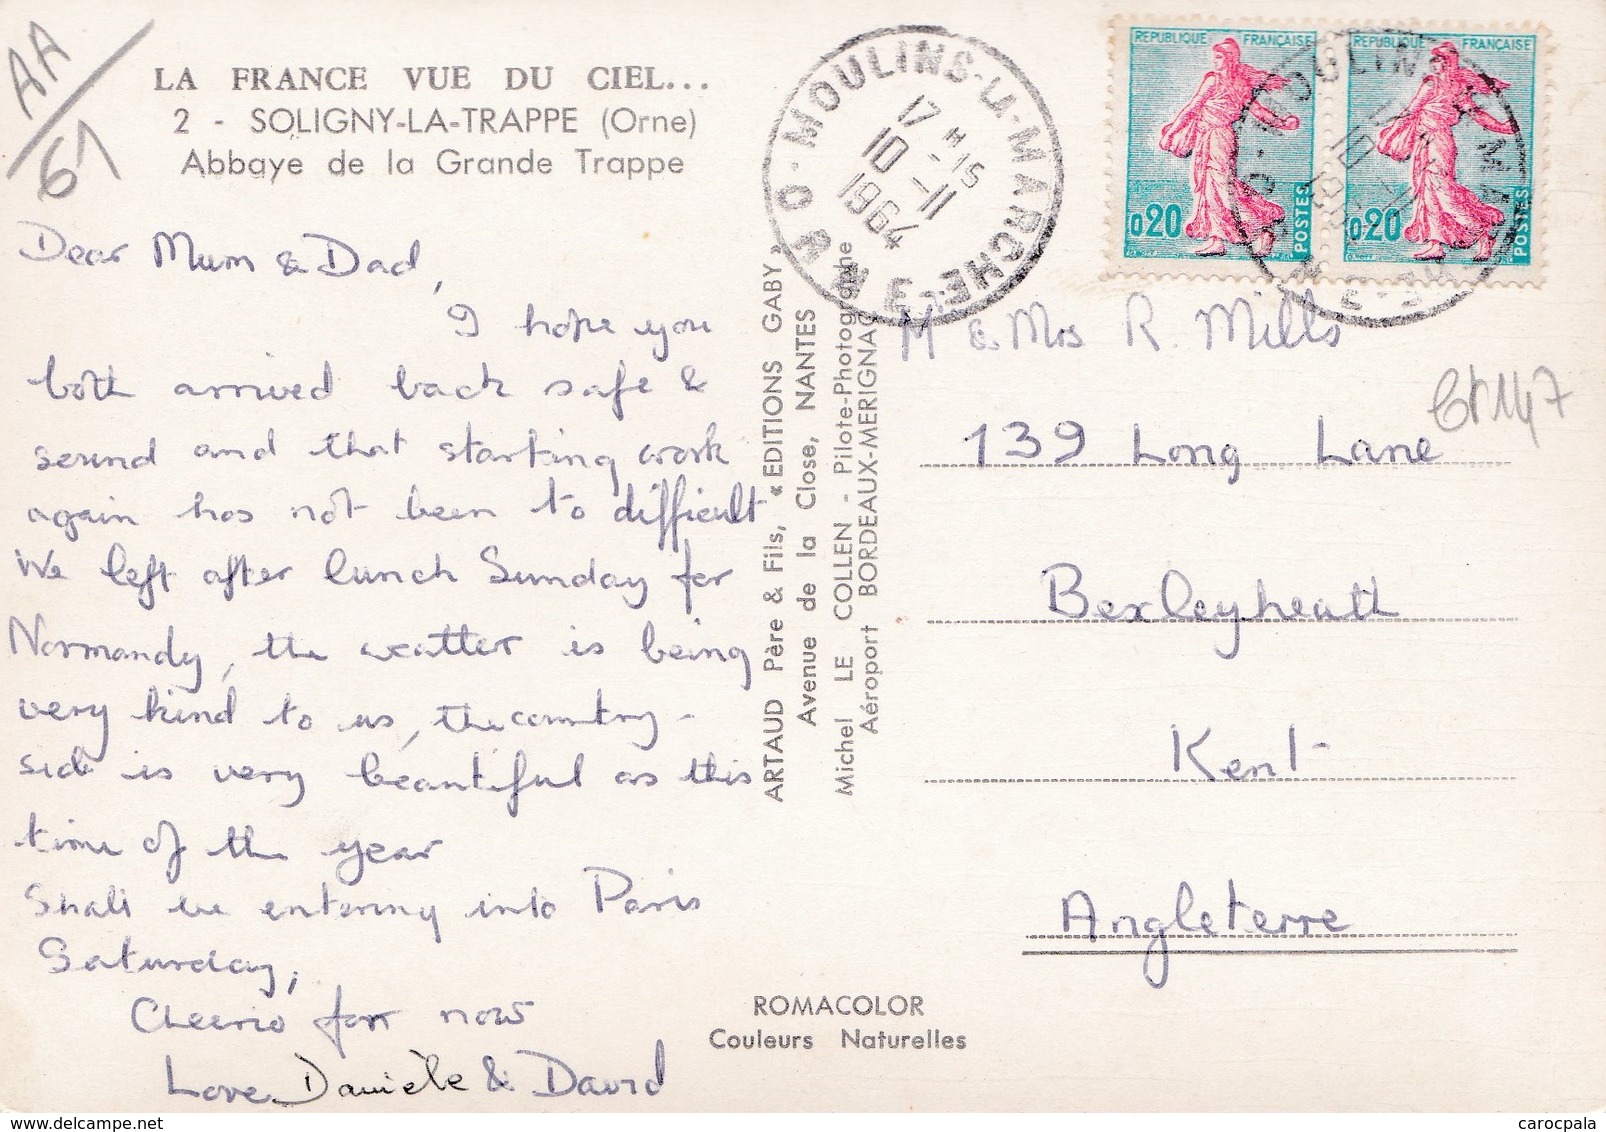 AA
61
LA FRANCE VUE DU CIEL...
2 - SOLIGNY-LA-TRAPPE (Orne)
Abbaye de la Grande Trappe
Dear Mum & Dad,
I hope you
both arrived back safe &
sound and that starting work
again has not been to difficult
We left after lunch Sunday for
Normandy, the weather is being
very kind to us, the country-
side is very beautiful as this
time of the year
Shall be entering into Paris
Saturday,
Cheerio for now
Love Danièle & David
ARTAUD Père & Fils, « EDITIONS GABY »
Avenue de la Close, NANTES
Michel LE COLLEN - Pilote-Photographe
Aéroport BORDEAUX-MERIGNAC
ROMACOLOR
Couleurs Naturelles
MOULINS-LA-MARCHE
ORNE
17 H -15
10 -11
1964
REPUBLIQUE FRANÇAISE
0,20
POSTES
REPUBLIQUE FRANÇAISE
0,20
POSTES
M & Mrs R. Mills
139 Long Lane
Bexleyheath
Kent
Angleterre
carocpala